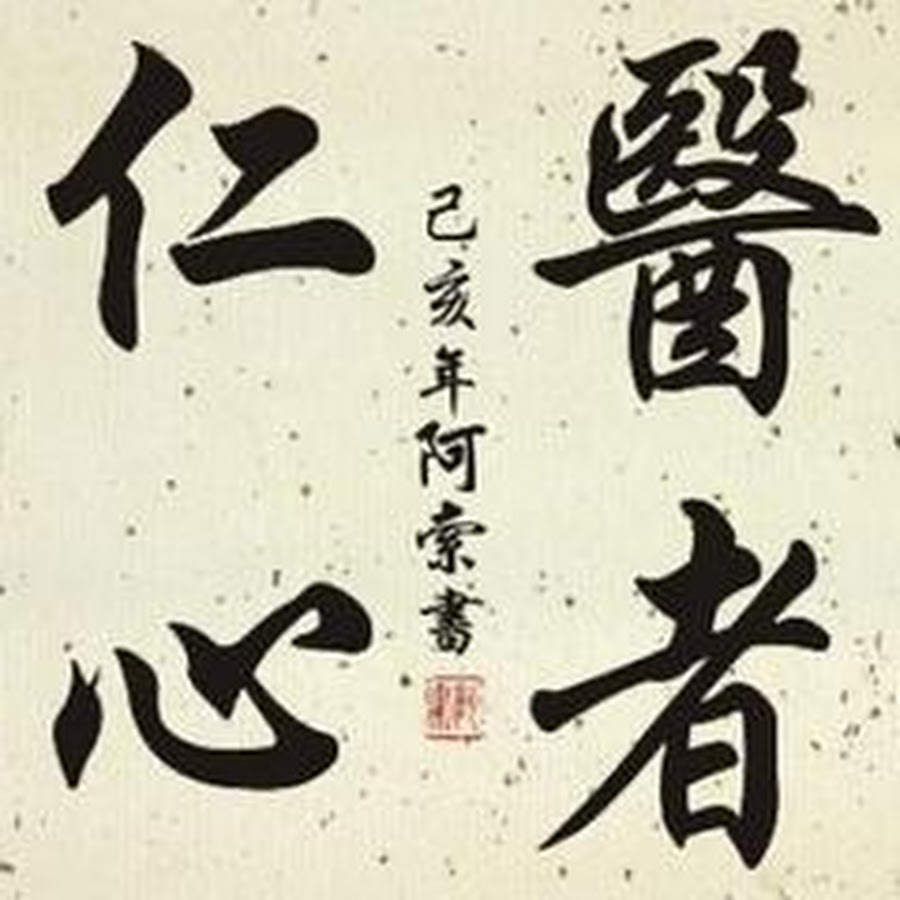 醫者
己亥年阿索書
仁心